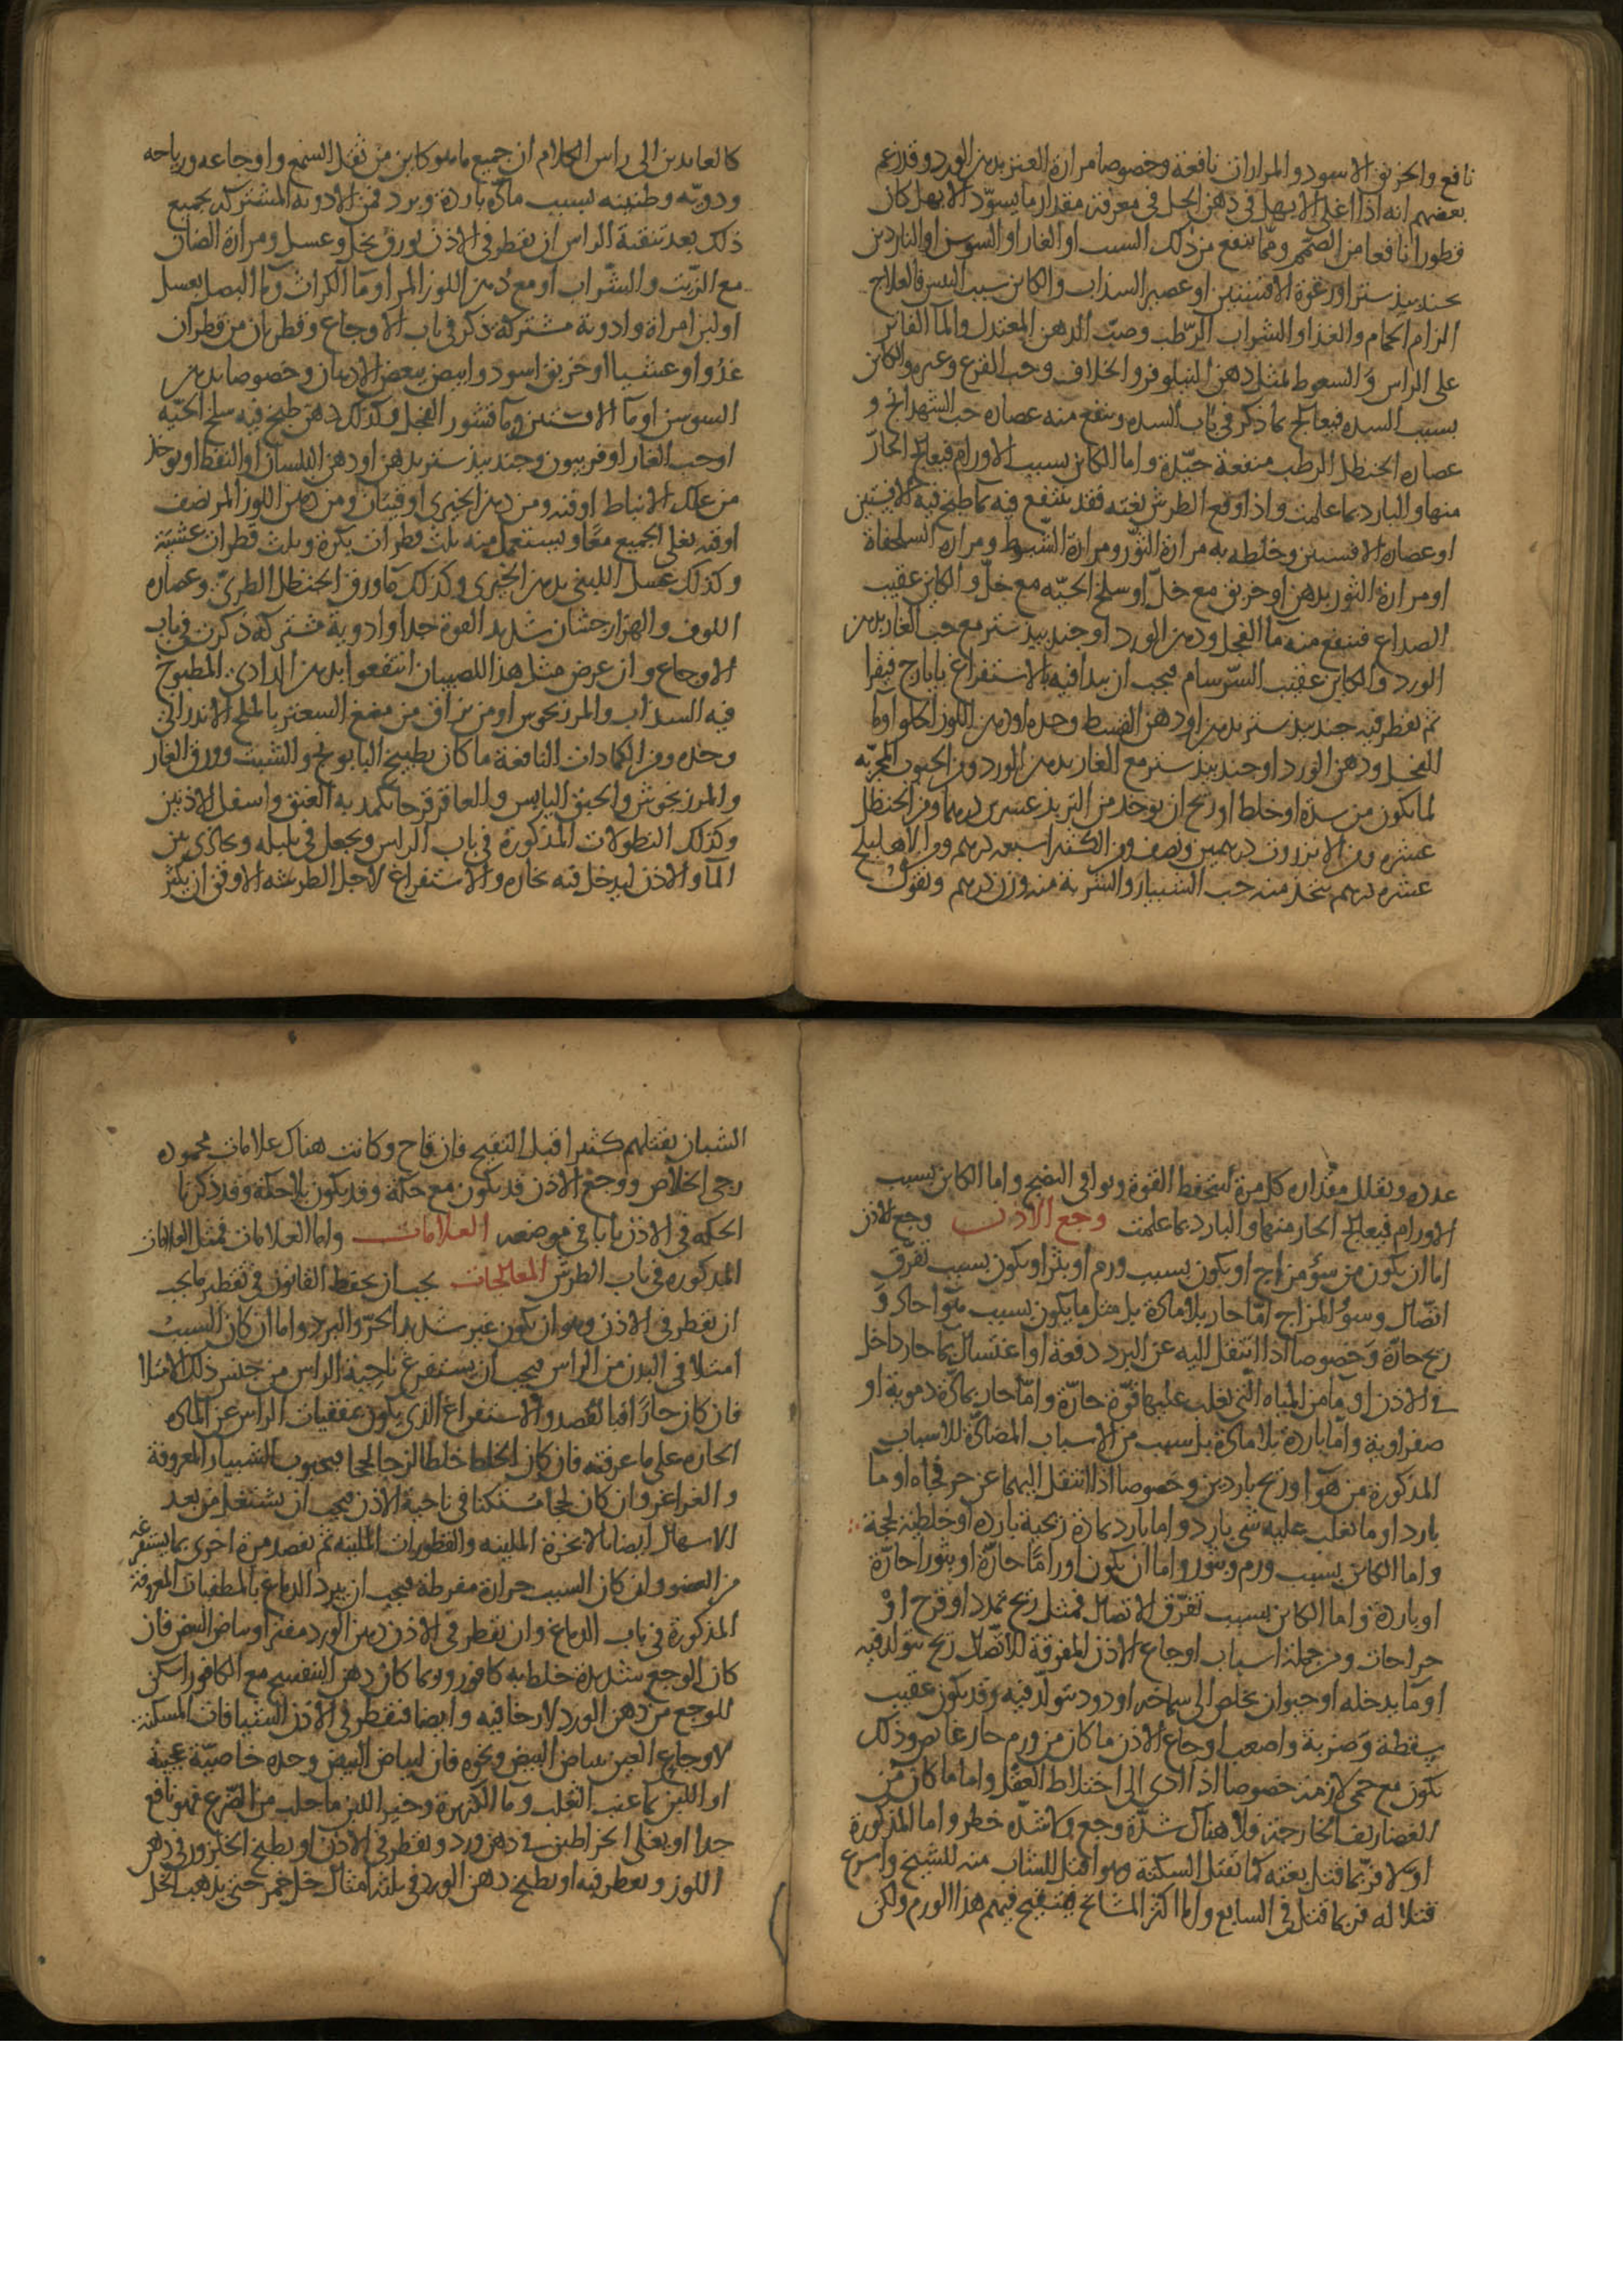 نافع والخربق الاسود والمرارات نافعة وخصوصا مرارة العنز بدهن الورد وقد زعم
بعضهم انه اذا اغلي الابهل في دهن الحل في مغرفة مقدار ما يسود الابهل كان
قطورا نافعا من الصمم ومما ينفع من ذلك السبب او الغار او السوسن او الناردين
بجندبيدستر او رغوة الافسنتين او عصير السذاب والكاين بسبب اليبس فالعلاج
الزام الحمام والغذا والشراب الرطب وصب الدهن المعتدل والما الفاتر
على الراس والسعوط بمثل دهن النيلوفر والخلاف وحب القرع وغيره والكاين
بسبب السده فيعالج بما ذكر في باب السده وينفع منه عصاره حب الشهدانج و
عصاره الحنظل الرطب منفعة جيّدة واما الكاين بسبب الاورام فيعالج الحارّ
منها والبارد بما علمت واذا وقع الطرش بغته فقد ينتفع فيه بما طبخ فيه الافسنتين
او عصاره الافسنتين وخلطه به مرارة الثور ومرارة الشبوط ومراره السلحفاة
او مرارة الثور بدهن او خربق مع خلّ او سلخ الحيّه مع خلّ والكاين عقيب
الصداع فينفع منه ما الفجل ودهن الورد او جندبيدستر مع حب الغار بدهن
الورد والكاين عقيب السّرسام فيجب ان يبدا فيه بالاستفراغ بايارج فيقرا
ثم يقطر فيه جندبيدستر بدهن او دهن القسط وحده او دهن اللوز الحلو او ما
الفجل ودهن الورد او جندبيدستر مع الغار بدهن الورد ومن الحبوب المجربّه
لما يكون من سدة او خلط او ريح ان يوخذ من التربذ عشرين درهما ومن الحنظل
عشره ومن الانزروت درهمين ونصف ومن الكثيرا سبعه دراهم ومن الاهليلج
عشره دراهم يتخذ منه حب الشبيار والشربة منه وزن درهم ونقول
كالعايدين الى راس الكلام ان جميع ما هو كاين من ثقل السمع واوجاعه ورياحه
ودويّه وطنينه بسبب مادّة باردة وبرد فمن الادوية المشتركة لجميع
ذلك بعد تنقية الراس ان يقطر في الاذن بورق بخل وعسل ومرارة الضان
مع الزيت والشراب او مع دهن اللوز المر او ما الكراث وما البصل بعسل
او لبن امراة وادوية مشتركة ذكر في باب الاوجاع وقطرتان من قطران
غدوا وعشيا او خربق اسود وابيض ببعض الادهان وخصوصا بدهن
السوسن او ما الافسنتين وما قشور الفجل وكذلك دهن طبخ فيه سلخ الحيّه
او حب الغار او فربيون وجندبيدستر بدهن او دهن البلسان او النفط او يوخذ
من علك الانباط اوقيه ومن دهن الخيري اوقيتان ومن دهن اللوز المر نصف
اوقيه يغلي الجميع معًا ويستعمل منه ثلث قطرات بكرة وثلث قطرات عشيّة
وكذلك عسل اللبنى بدهن الخيري وكذلك ما ورق الحنظل الطري وعصاره
اللوف والهزارجشان شديد القوة جدا وادوية مشتركه ذكرت في باب
الاوجاع وان عرض مثل هذا للصبيان انتفعوا بدهن الدادي المطبوخ
فيه السذاب والمرزنجوش او من بزاق من مضغ السعتر بالملح الاندراني
وحده ومن الكمادات النافعة ما كان بطبيخ البابونج والشبت وورق الغار
والمرزنجوش والحبق اليابس والعاقرقرحا يكمد به العنق واسفل الاذنين
وكذلك النطولات المذكورة في باب الراس ويجعل في بلبله ويحاذى بين
الما والاذن ليدخل فيه بخاره والاستفراغ لاجل الطرشه الاوفق ان يكثر
عدده ويقلل مقداره كل مرة لتحفظ القوة ويوافي النضج واما الكاين بسبب
الاورام فيعالج الحار منها والبارد بما علمت وجع الاذن وجع الاذن
اما ان يكون من سؤ مزاج او يكون بسبب ورم او بثر او يكون بسبب تفرق
اتصال وسوء المزاج امّا حار بلا مادّة بل مثل ما يكون بسبب هوا حار و
ريح حارّة وخصوصا اذا انتقل اليه عن البرد دفعة او اغتسال بما حار داخل
في الاذن او ما من المياه التي تغلب عليها قوّة حارّة وامّا حار بمادّة دموية او
صفراوية وامّا باردة بلا مادّة بل سبب من الاسباب المضادّة للاسباب
المذكورة من هوآ او ريح باردين وخصوصا اذا انتقل اليهما عن حر فجاه او ما
بارد او ما تغلب عليه شي بارد واما بارد بمادّة ريحية باردة او خلطية لحجة
واما الكاين بسبب ورم وبثور واما ان يكون اورامًا حارّة او بثورا حارّة
او باردة واما الكاين بسبب تفرّق الاتصال فمثل ريح تمدد او قرح او
جراحات ومن جملة اسباب اوجاع الاذن المفرقة للاتّصال ريح يتولد فيه
او ما يدخله او حيوان يخلص الى صماخه او دود يتولّد فيه وقد يكون عقيب
سقطة وضربة واصعب اوجاع الاذن ما كان من ورم حار غايص وذلك
يكون مع حمى لازمة خصوصا اذا ادى الى اختلاط العقل واما ما كان من
الغضاريف الخارجة فلا هناك شدّة وجع ولا شدّه خطر واما المذكورة
اولا فربما قتل بغته كما تقتل السكتة وهو اقتل للشاب منه للشيخ واسرع
قتلا له فربما قتل في السابع واما اكثر المشايخ فيتقيح فيهم هذا الورم ولكن
الشبان يقتلهم كثيرا قبل التقيح فان قاح وكانت هناك علامات محموده
رجي الخلاص ووجع الاذن قد يكون مع حكة وقد يكون بلا حكة وقد ذكرنا
الحكه في الاذن بابا في موضعه العلامات واما العلامات فمثل العلامات
المذكوره في باب الطرش المعالجات يجب ان يحفظ القانون في تقطير ما يجب
ان تقطر في الاذن وهو ان يكون غير شديد الحرّ والبرد واما ان كان السبب
امتلا في البدن من الراس فيجب ان يستفرغ ناحية الراس من جنس ذلك الامتلا
فان كان حارّا فبالفصد والاستفراغ الذي يكون بمنقيات الراس عن المادة
الحاره على ما عرفته فان كان الخلط خلطا لزجا لحجا فبحبوب الشبيار المعروفة
والغراغر وان كان لحجا مستكنا في ناحية الاذن فيجب ان يشتغل من بعد
الاسهال ايضا بالابخرة الملينه والقطورات الملينه ثم يقصد مرة اخرى بما يستفرغه
من العضو وان كان السبب حرارة مفرطه فيجب ان يبرد الدماغ بالمطفيات المعروفة
المذكورة في باب الدماغ وان تقطر في الاذن دهن الورد مفترا وبياض البيض فان
كان الوجع شديدة خلط به كافور وربما كان دهن البنفسج مع الكافور اسكن
للوجع من دهن الورد لارخا فيه وايضا فتقطر في الاذن الشيافات المسكنة
لاوجاع العين ببياض البيض ونحوه فان لبياض البيض وحده خاصيّة عجيبة
او اللبن بما عنب الثعلب وما الكزبرة وخير اللبن ما حلب من الضّرع فهو نافع
جدا او يغلى الخراطين في دهن ورد ويقطر في الاذن او يطبخ الحلزون في دهن
اللوز ويقطر فيه او يطبخ دهن الورد في ثلثه امثال خل خمر حتى يذهب الخل